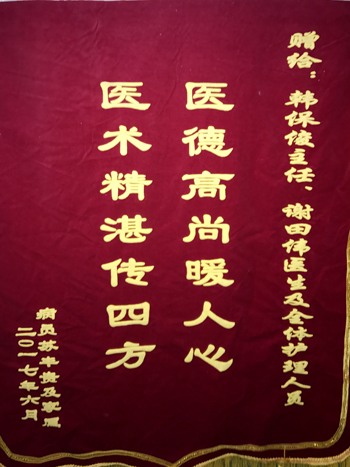 赠给：韩保俊主任、谢田伟医生及全体护理人员
医德高尚暖人心
医术精湛传四方
病员苏丰贵及家属
二〇一七年六月